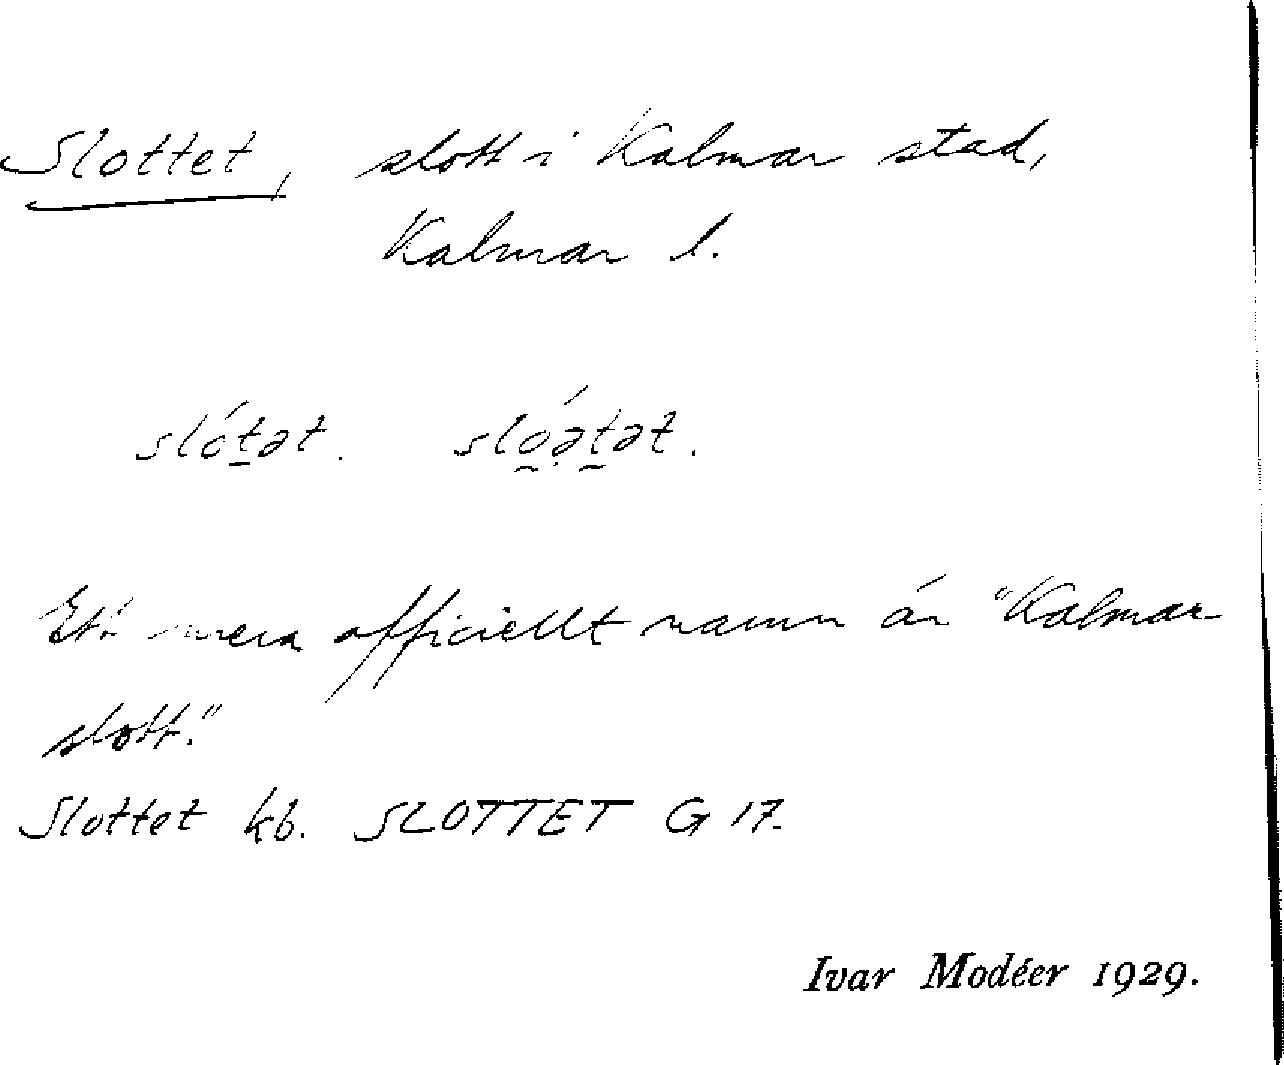 Slottet, slott i Kalmar stad,
Kalmar l.
slót̠ət. slo̰ə̣́t̰ət.
Ett mera officiellt namn är "Kalmar
slott."
Slottet kb. SLOTTET G 17.
Ivar Modéer 1929.